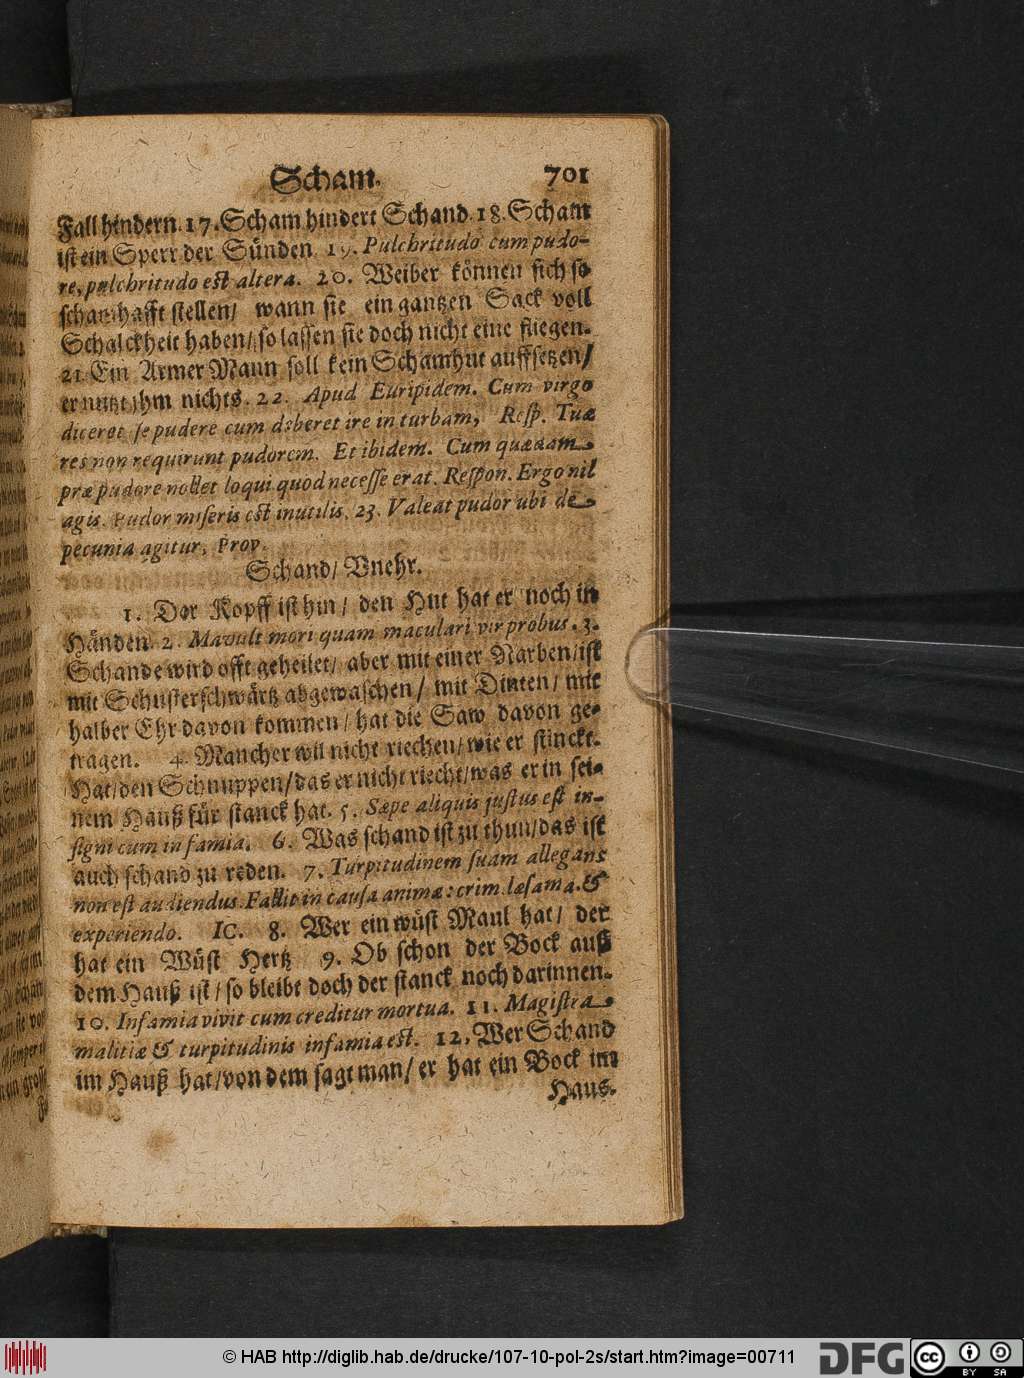 Scham. 701
Fall hindern. 17. Scham hindert Schand. 18. Scham
ist ein Sperr der Sünden. 19. Pulchritudo cum pudo-
re, pulchritudo est altera. 20. Weiber können sich so
schamhafft stellen/ wann sie ein gantzen Sack voll
Schalckheit haben/ so lassen sie doch nicht eine fliegen.
21. Ein Armer Mann soll kein Schamhut auffsetzen/
er nutzt ihm nichts. 22. Apud Euripidem. Cum virgo
diceret se pudere cum deberet ire in turbam, Resp. Tuæ
res non requirunt pudorem. Et ibidem. Cum quædam
præ pudore nollet loqui quod necesse erat. Respon. Ergo nil
agis. Pudor miseris est inutilis. 23. Valeat pudor ubi de
pecunia agitur, Prov.
Schand/ Vnehr.
1. Der Kopff ist hin/ den Hut hat er noch in
Händen. 2. Mavult mori quam maculari vir probus. 3.
Schande wird offt geheilet/ aber mit einer Narben/ ist
mit Schusterschwärtz abgewaschen/ mit Dinten/ mit
halber Ehr davon kommen/ hat die Saw davon ge-
tragen. 4. Mancher wil nicht riechen/ wie er stinckt.
Hat/ den Schnuppen/ das er nicht riecht/ was er in sei-
nem Hauß für stanck hat. 5. Sæpe aliquis justus est in-
signi cum infamia. 6. Was schand ist zu thun/ das ist
auch schand zu reden. 7. Turpitudinem suam allegans
non est audiendus. Fallit in causa animæ: crim. læsa ma. &
experiendo. IC. 8. Wer ein wüst Maul hat/ der
hat ein Wüst Hertz 9. Ob schon der Bock auß
dem Hauß ist/ so bleibt doch der stanck noch darinnen.
10. Infamia vivit cum creditur mortua. 11. Magistra
malitiæ & turpitudinis infamia est. 12. Wer Schand
im Hauß hat/ von dem sagt man/ er hat ein Bock im
Haus.
© HAB http://diglib.hab.de/drucke/107-10-pol-2s/start.htm?image=00711
DFG
cc BY SA